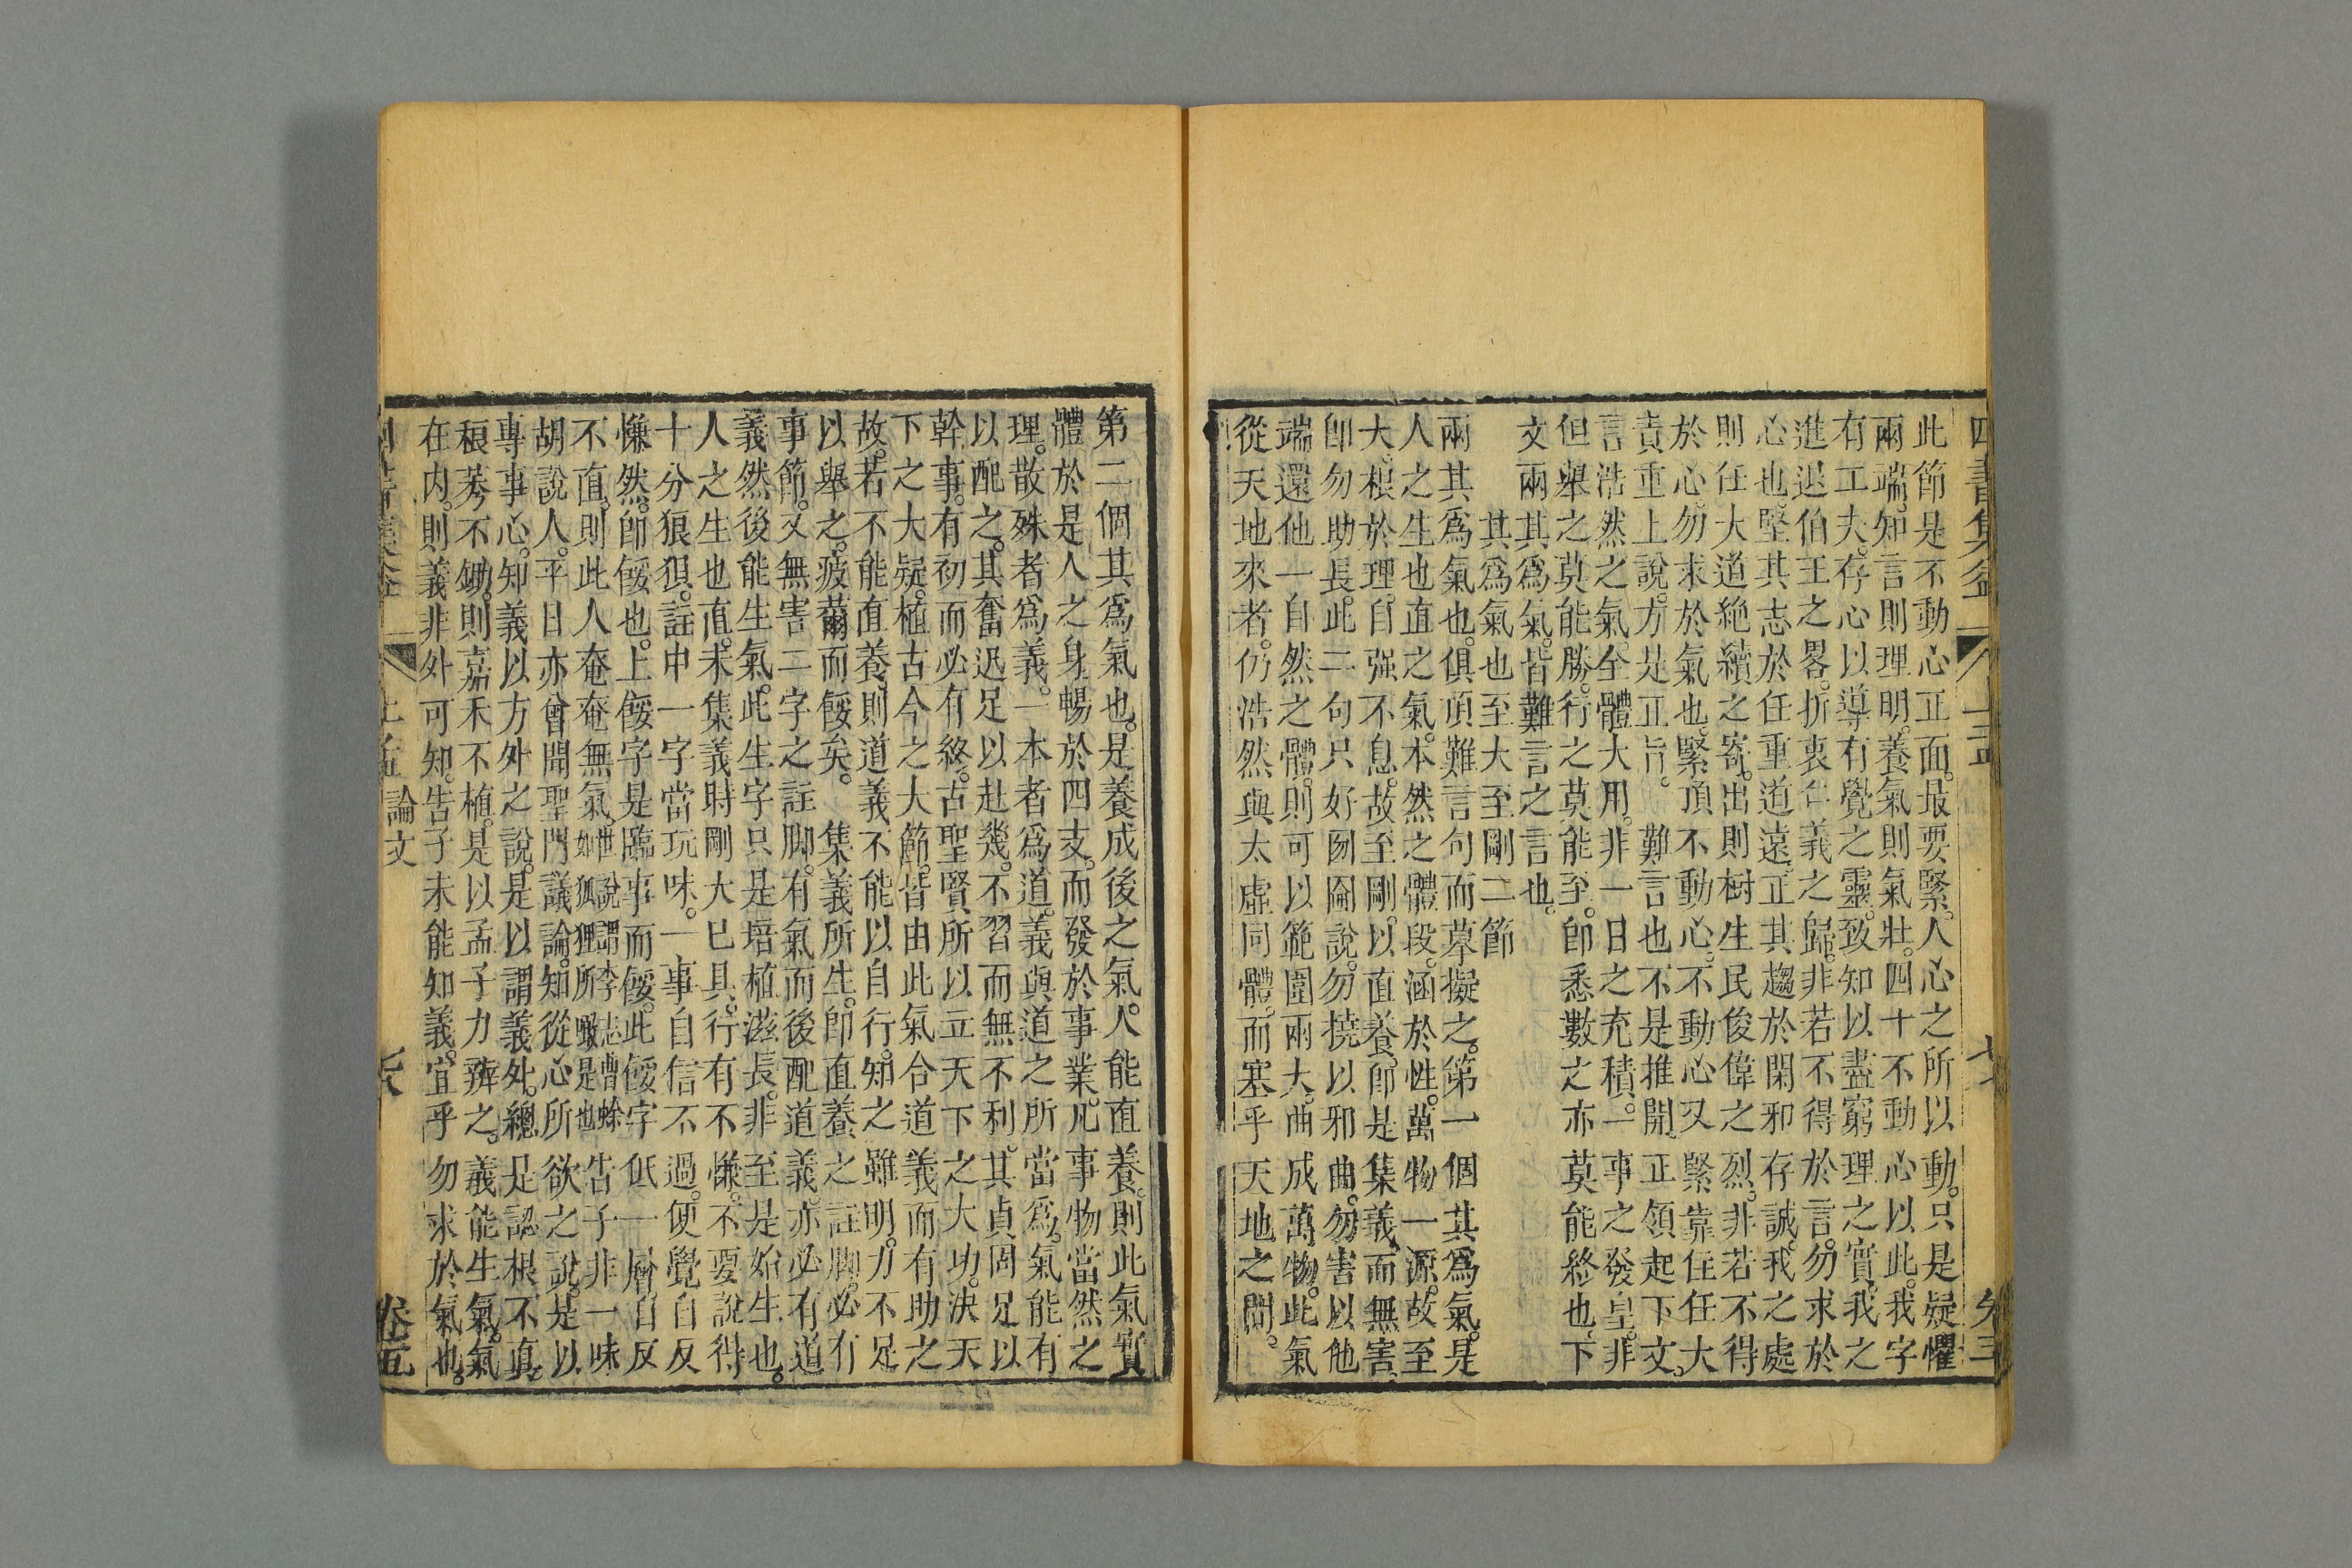 此節是不動心正面。最要緊。人心之所以動。只是疑懼
兩端。知言則理明。養氣則氣壯。四十不動心以此。我字
有工夫。存心以導有覺之靈。致知以盡窮理之實。我之
進退伯王之畧。折衷仁義之歸。非若不得於言。勿求於
心也。堅其志於任重道遠。正其趨於閑邪存誠。我之處
則任大道絶續之寄。出則樹生民俊偉之烈。非若不得
於心。勿求於氣也。緊頂不動心。不動心又緊靠任任大
責重上說。方是正旨。 難言也不是推開。正領起下文。
言浩然之氣。全體大用。非一日之充積。一事之發皇。非
但舉之莫能勝。行之莫能至。卽悉數之亦莫能終也。下
文兩其爲氣。皆難言之言也。
其爲氣也至大至剛二節
兩其爲氣也。俱頂難言句而摹擬之。第一個其爲氣。是
人之生也直之氣。本然之體段。涵於性。萬物一源。故至
大。根於理。自强不息。故至剛。以直養。卽是集義。而無害。
卽勿助長。此二句只好囫圇說。勿撓以邪曲。勿害以他
端。還他一自然之體。則可以範圍兩大。曲成萬物。此氣
從天地來者。仍浩然與太虛同體。而塞乎天地之間。
第二個其爲氣也。是養成後之氣。人能直養。則此氣實
體於是人之身。暢於四支。而發於事業。凡事物當然之
理。散殊者爲義。一本者爲道。義與道之所當爲。氣能有
以配之。其奮迅足以赴幾。不習而無不利。其貞固足以
幹事。有初而必有終。古聖賢所以立天下之大功。決天
下之大疑。植古今之大節。皆由此氣合道義而有助之
故。若不能直養。則道義不能以自行。知之雖明。力不足
以舉之。疲薾而餒矣。 集義所生。卽直養之註脚。必有
事節。又無害二字之註脚。有氣而後配道義。亦必有道
義然後能生氣。此生字只是培植滋長。非至是始生也。
人之生也直。未集義時剛大已具。行有不慊。不要說得
十分狠狽。註中一字當玩味。一事自信不過。便覺自反
慊然。卽餒也。上餒字是臨事而餒。此餒字低一層。自反
不直。則此人奄奄無氣。世說謂李志曹蜍如狐狸所噉是也告子非一味
胡說人。平日亦曾聞聖門議論。知從心所欲之說。是以
專事心。知義以方外之說。是以謂義外。總是認根不眞。
稂莠不鋤。則嘉禾不植。是以孟子力辨之。義能生氣。氣
在內。則義非外可知。告子未能知義。宜乎勿求於氣也。
論文
卷五